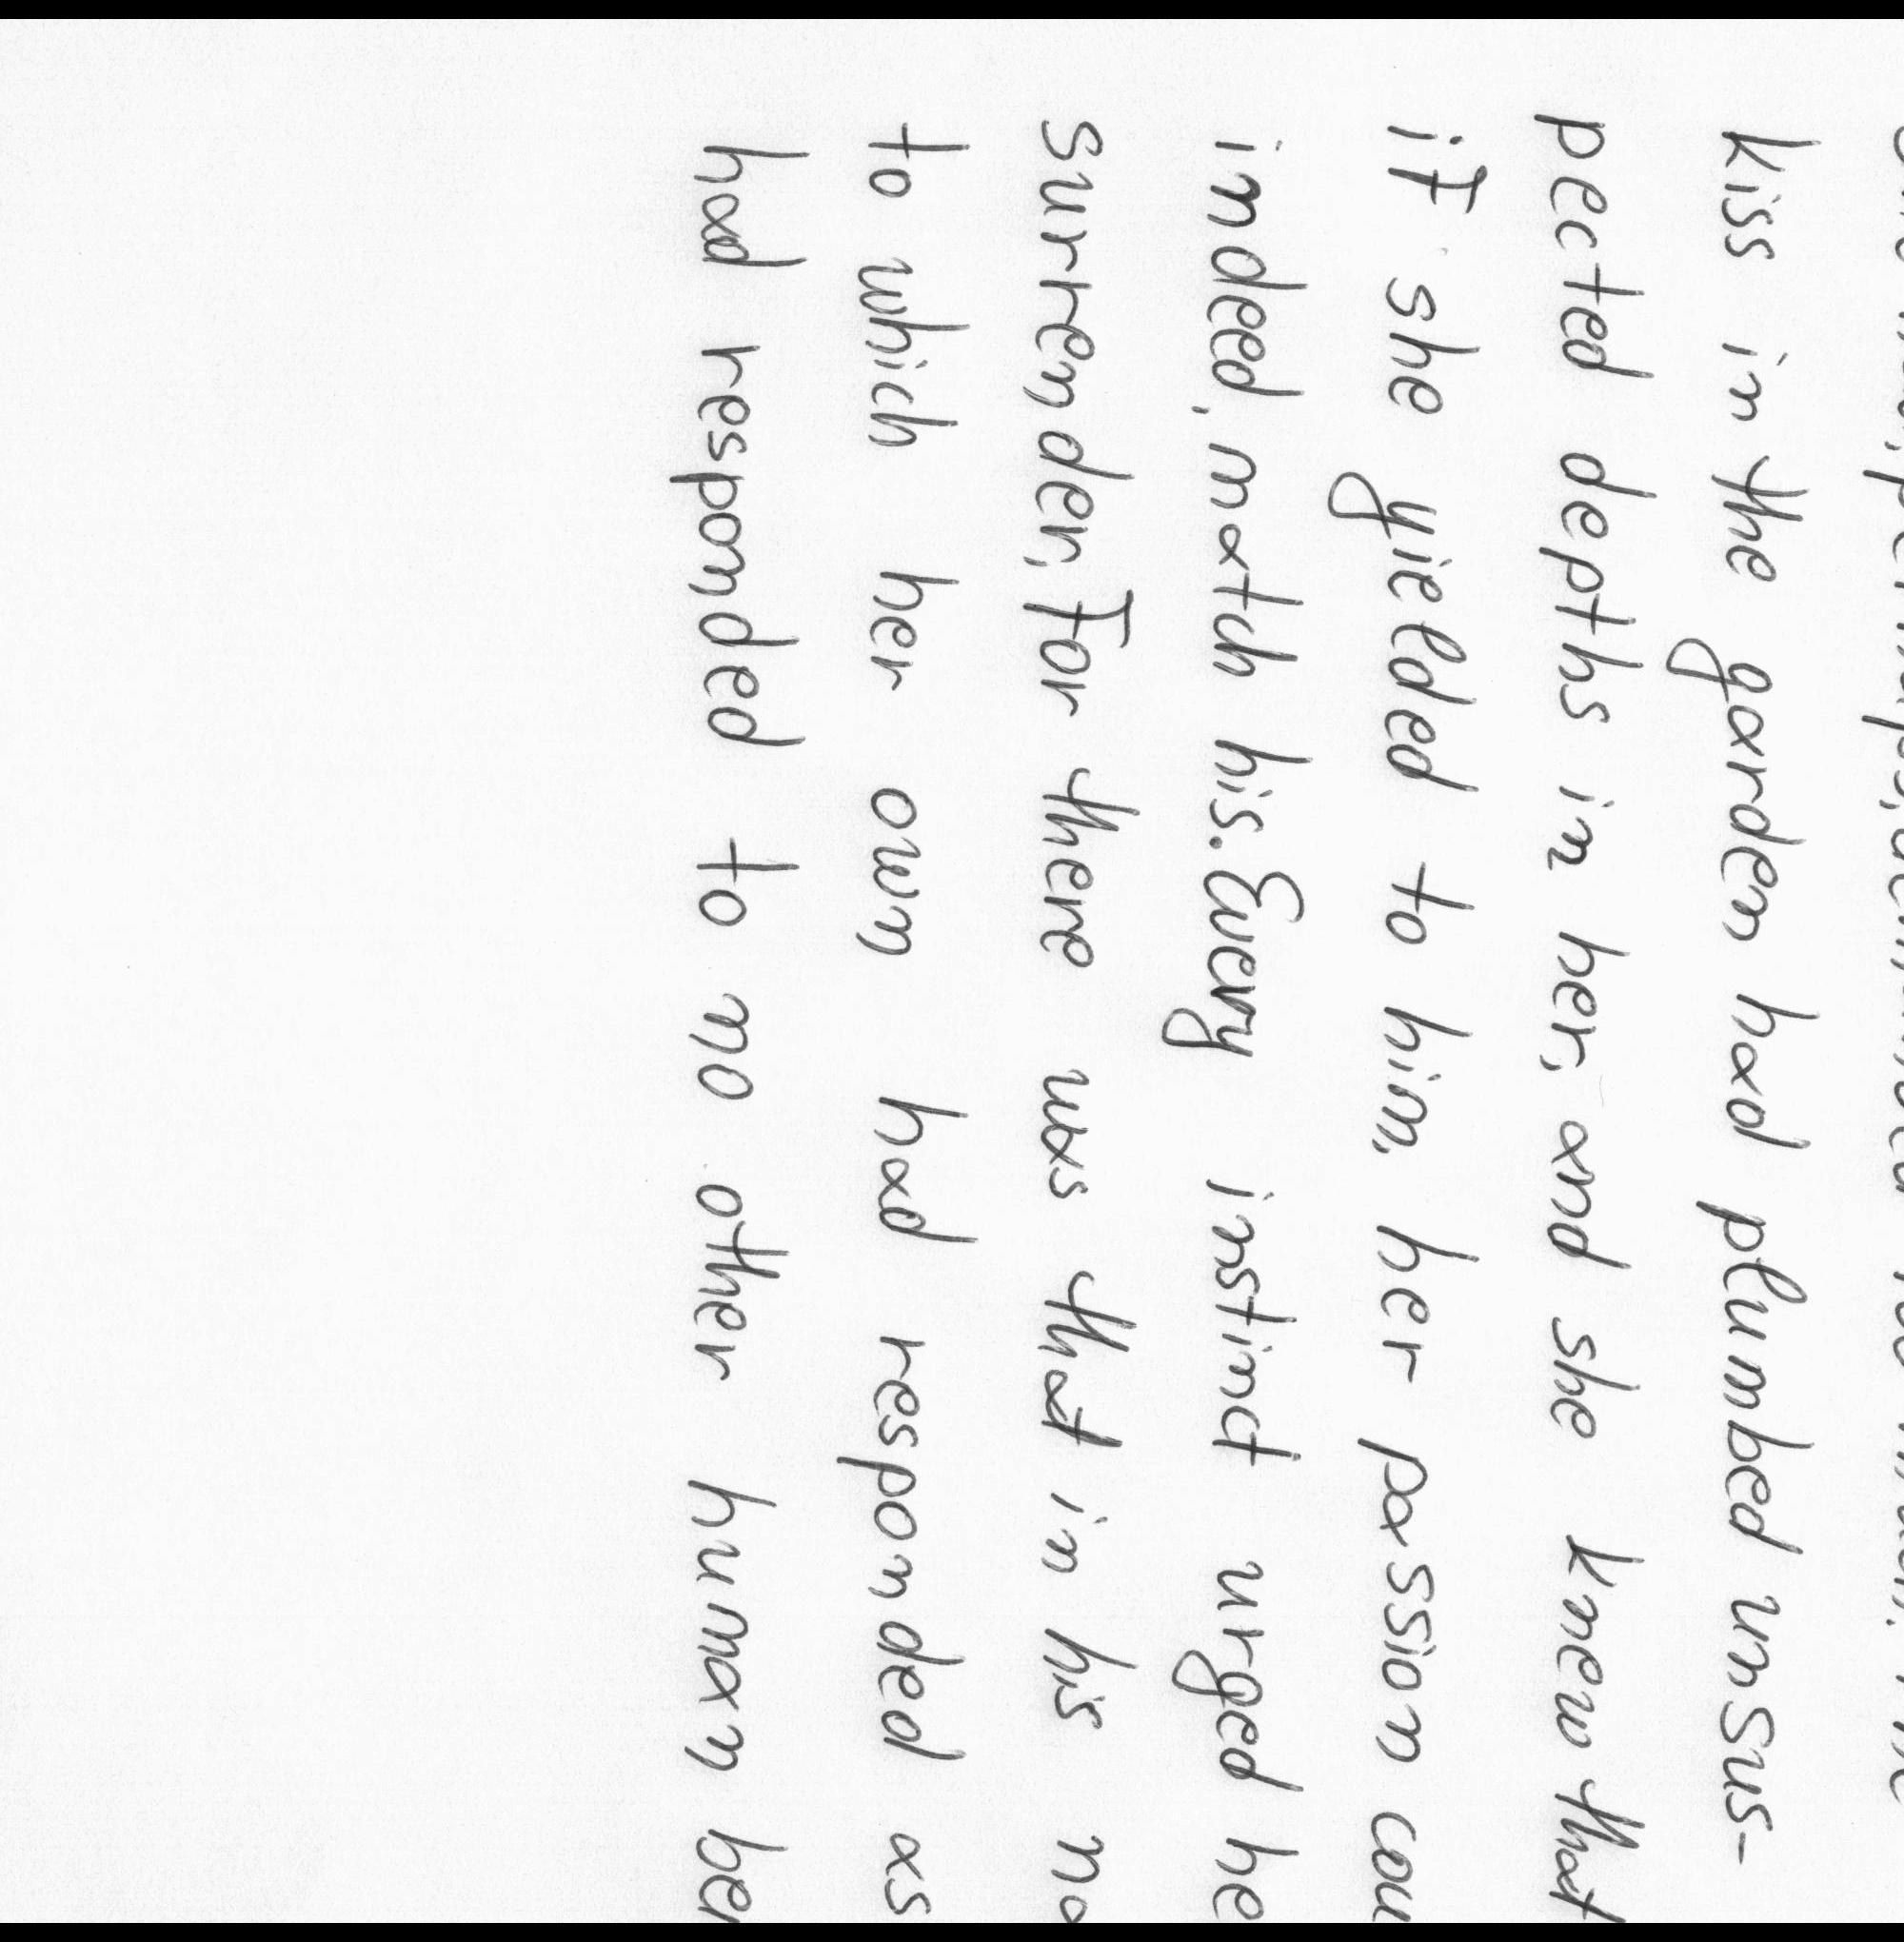 kiss in the garden had plumbed unsus-
pected depths in her, and she knew that
if she yielded to him, her passion
indeed, match his. Every instinct urged
surrender, For there was that in his
to which her own had responded as
had responded to no other human